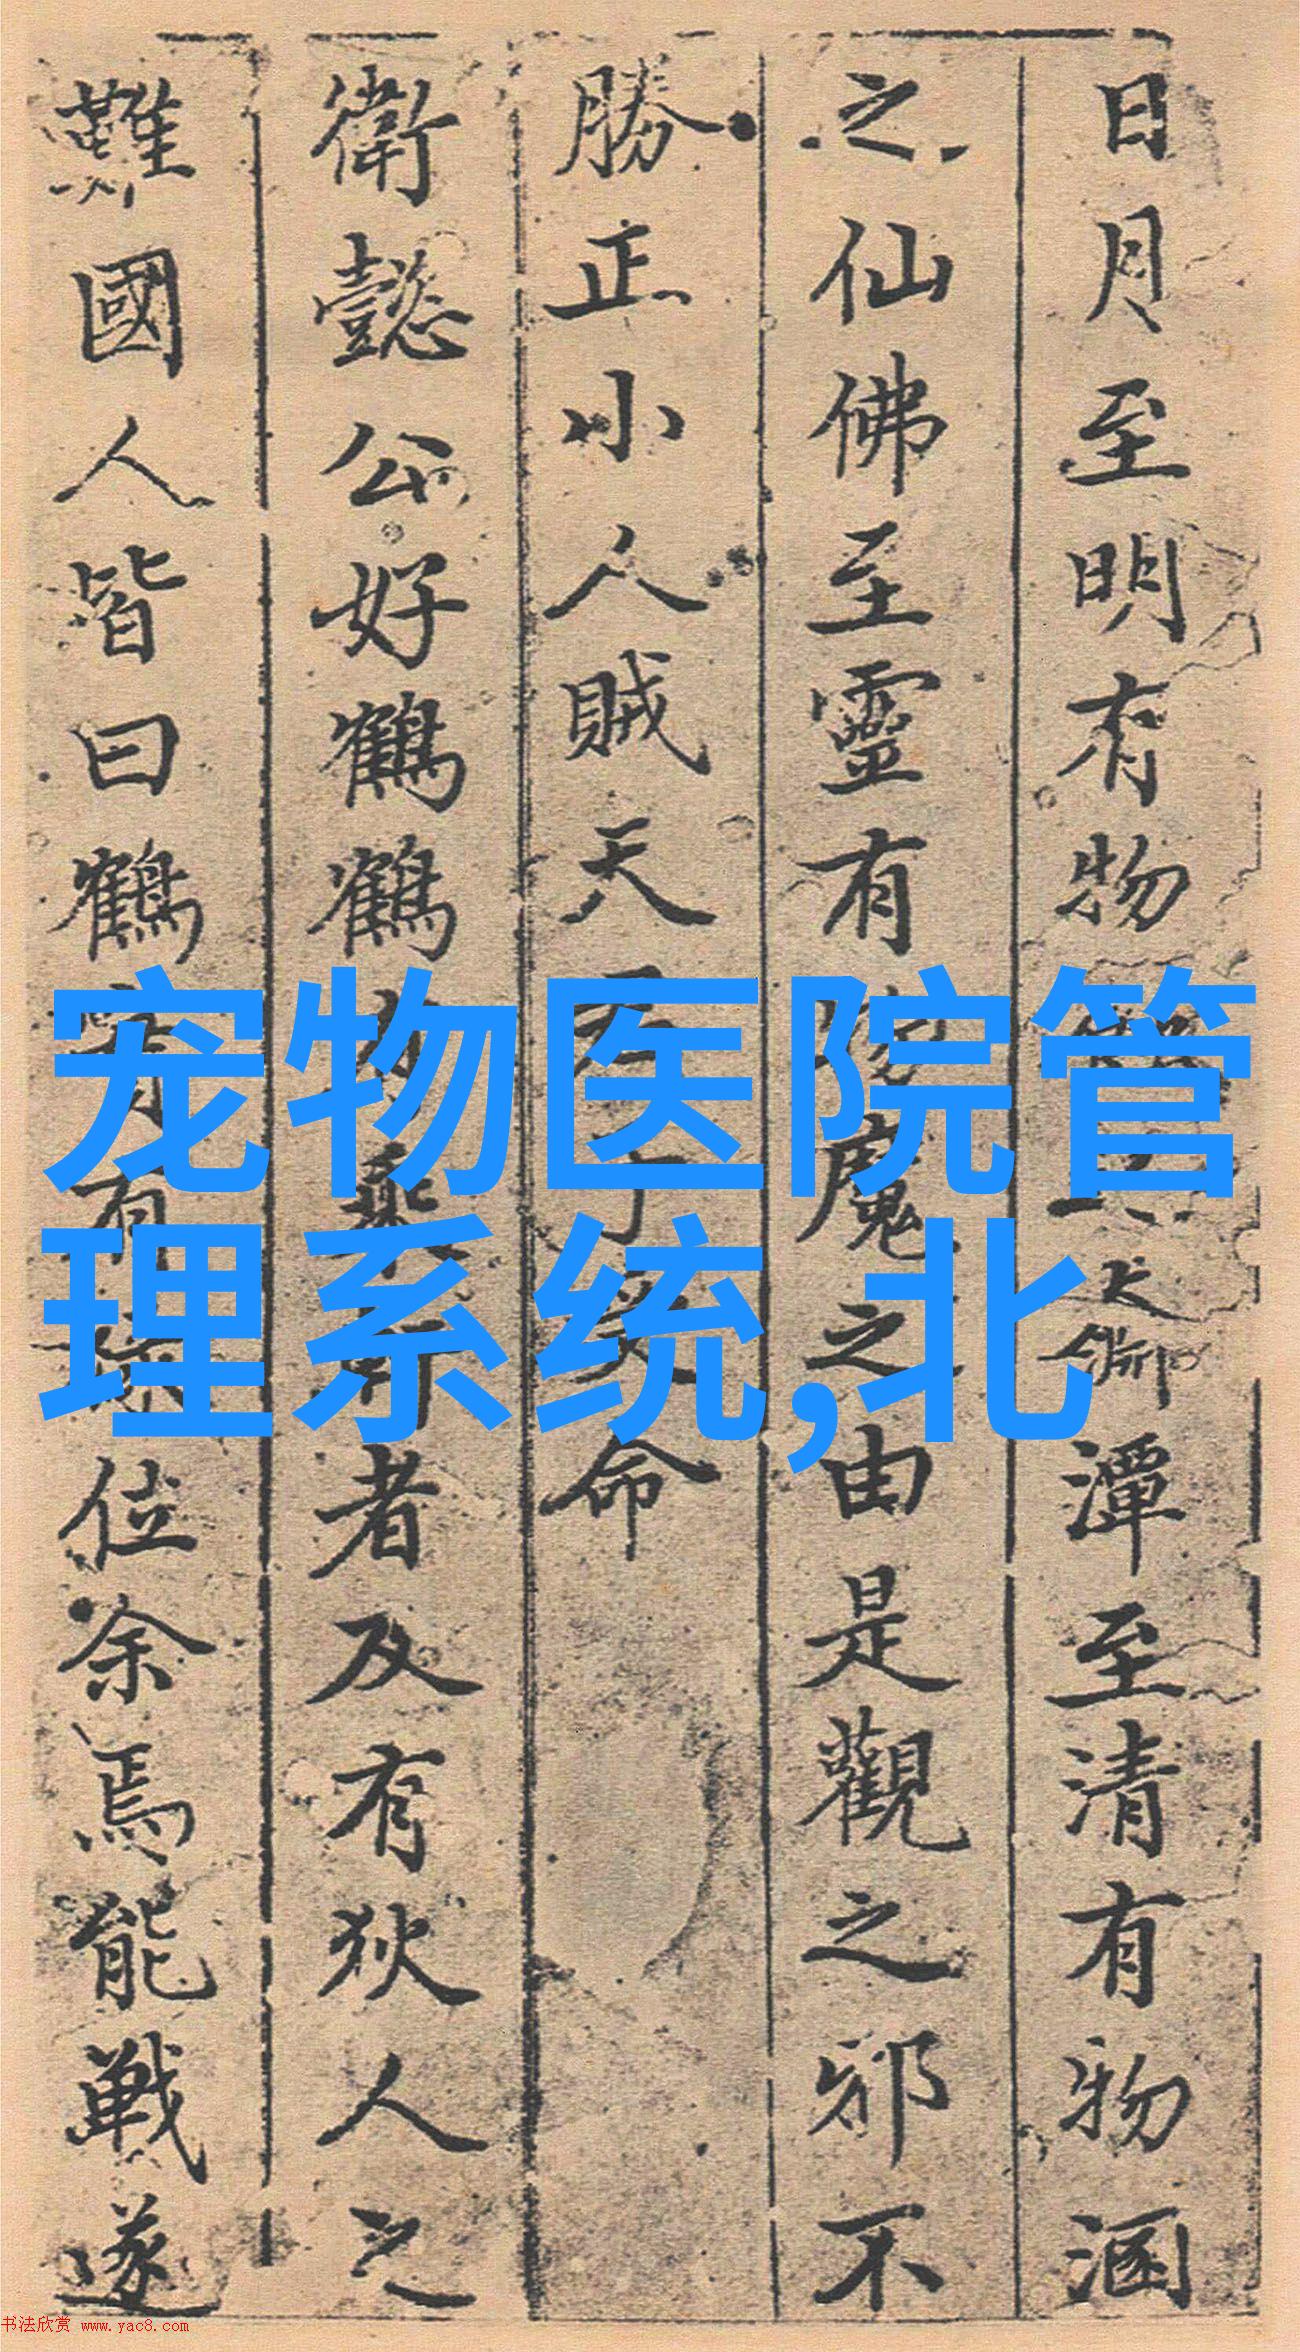 日月至明有物
大㣲潭至清有物涵
之仙佛至靈有 魔之由是觀之邪不
勝正小人賊天天 命
衛懿公好鶴鶴 乘 者及有狄人之
難國人皆曰鶴 有 位余焉能戰遂
宠物医院管
理系统,北
书法欣赏 www.yac8.com